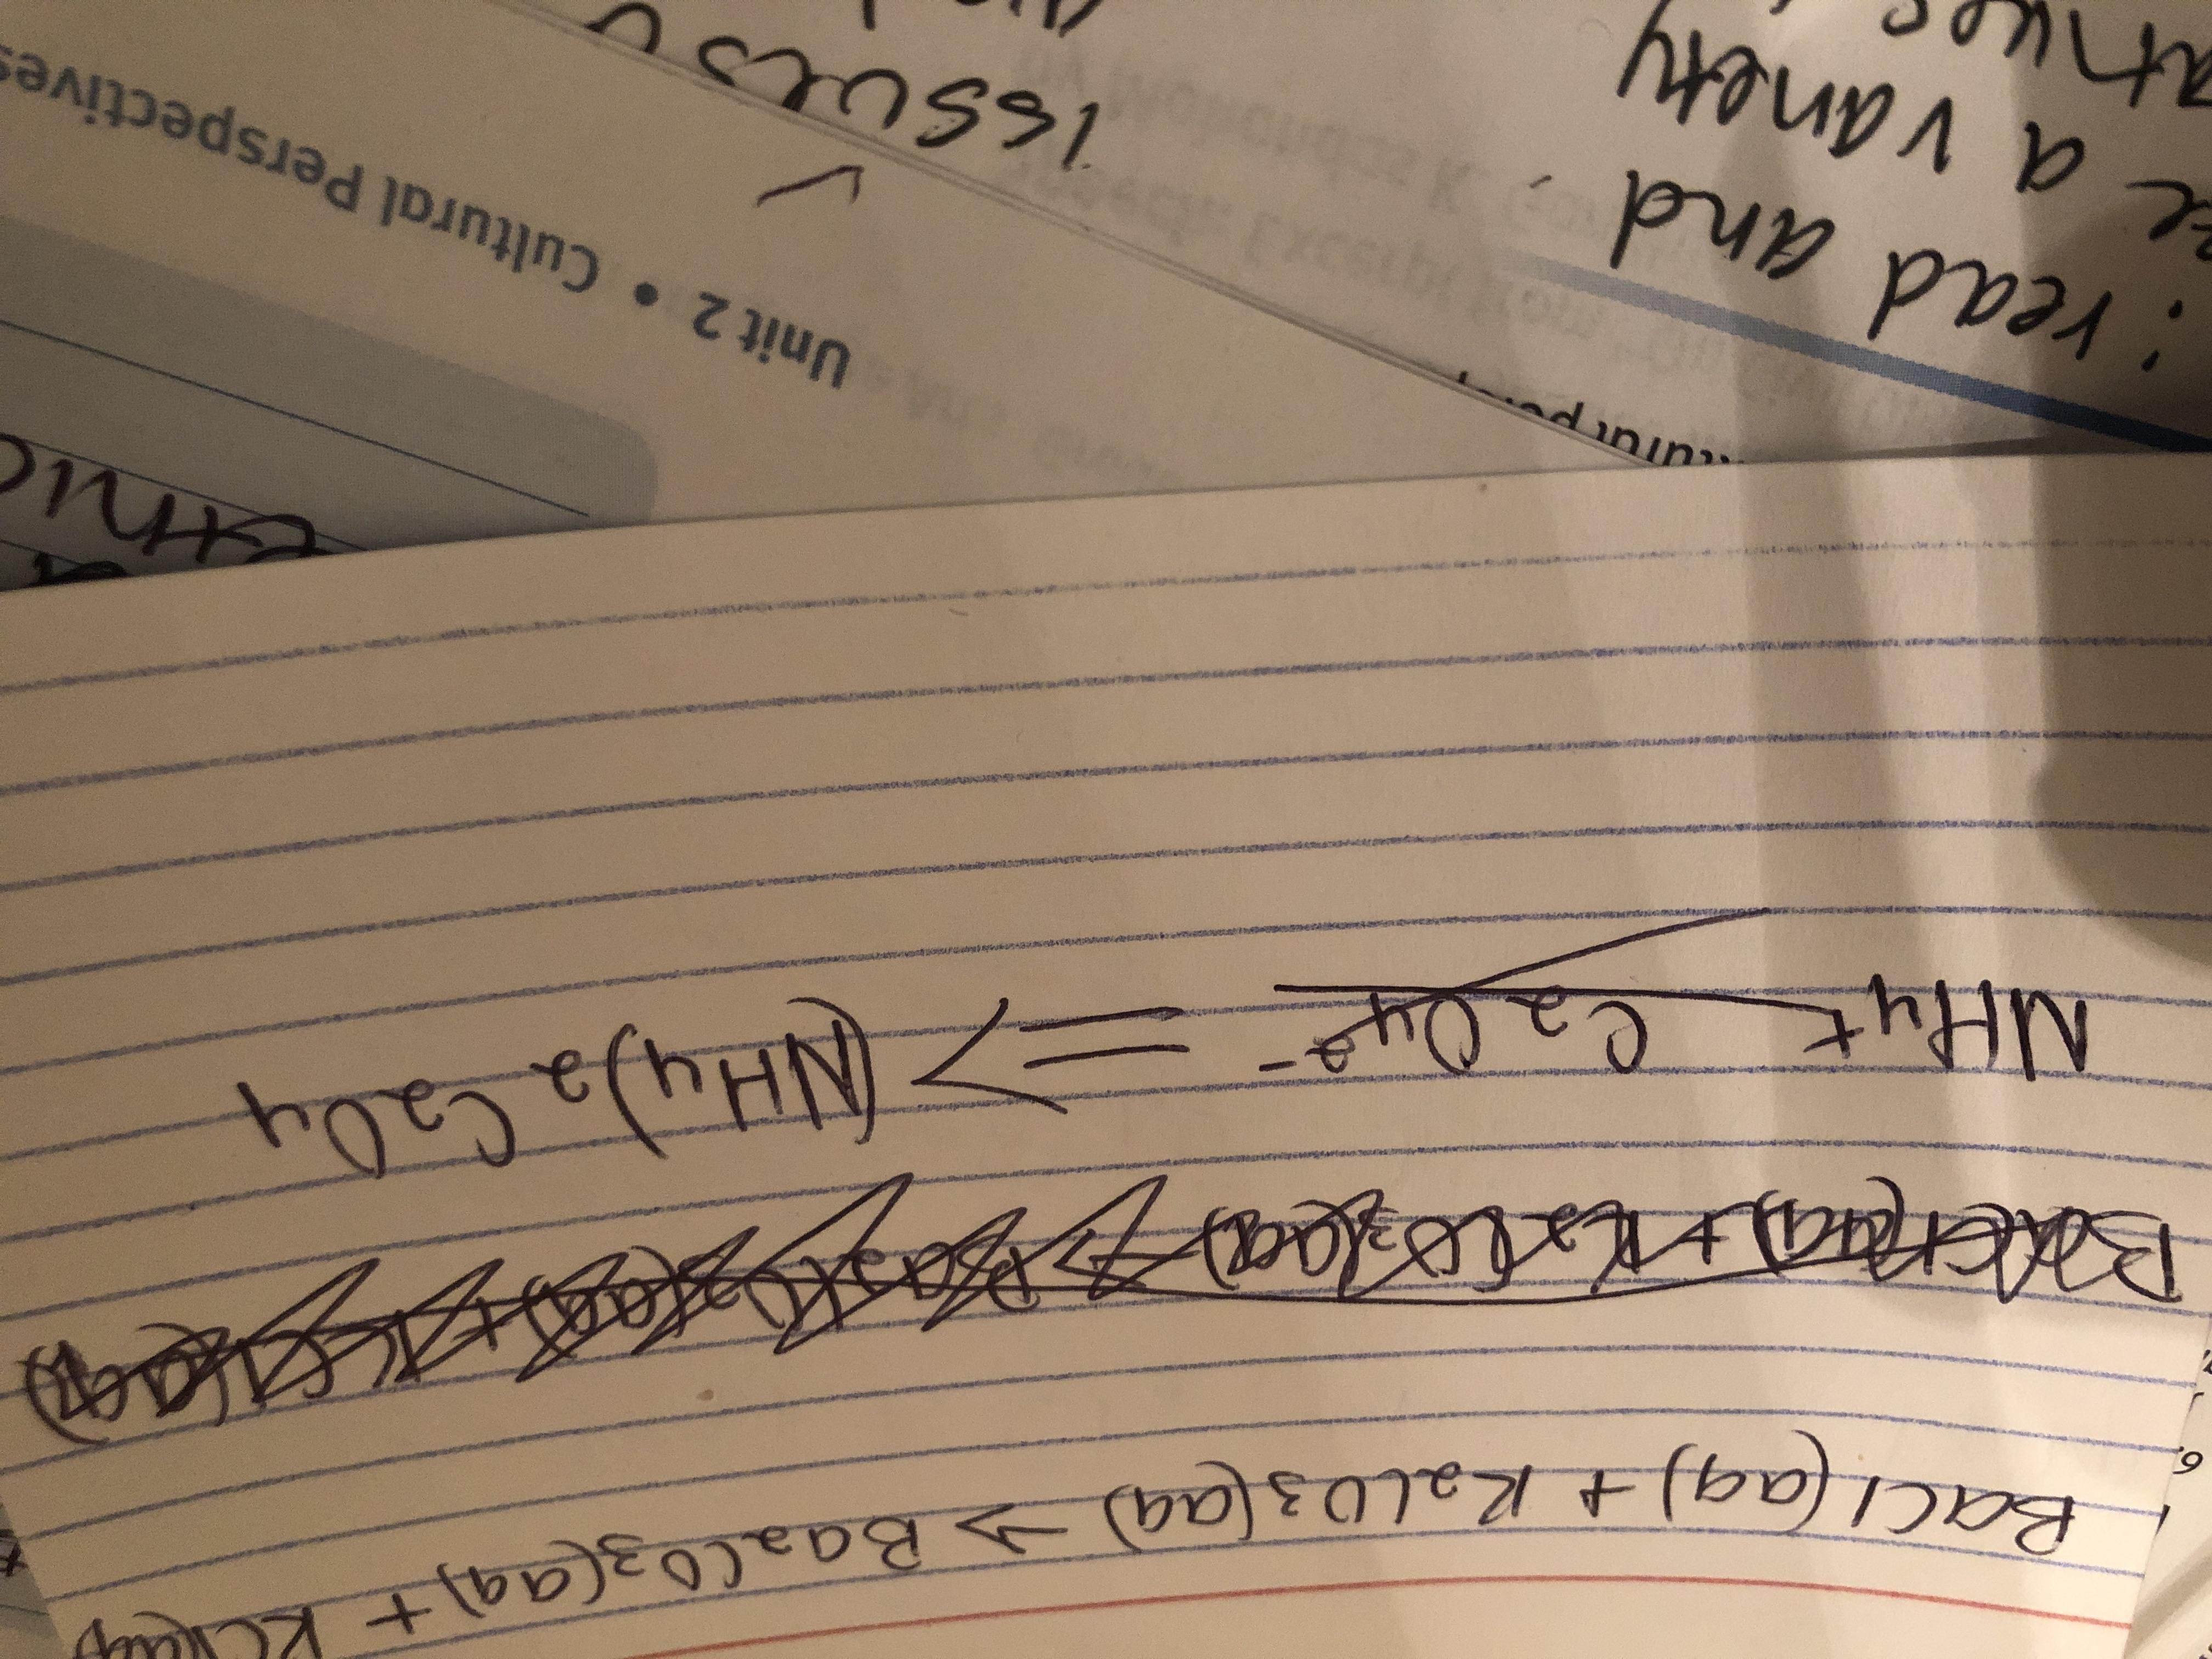 BaCl(aq) + K2CO3(aq) → Ba2CO3(aq) + KCl(aq)
BaCl(aq) + K2CO3(aq) → Ba2CO3(aq) + KCl(aq)
NH4+ C2O4 2- => (NH4)2 C2O4
Unit 2 • Cultural Perspectives
: read and
a variety
issues